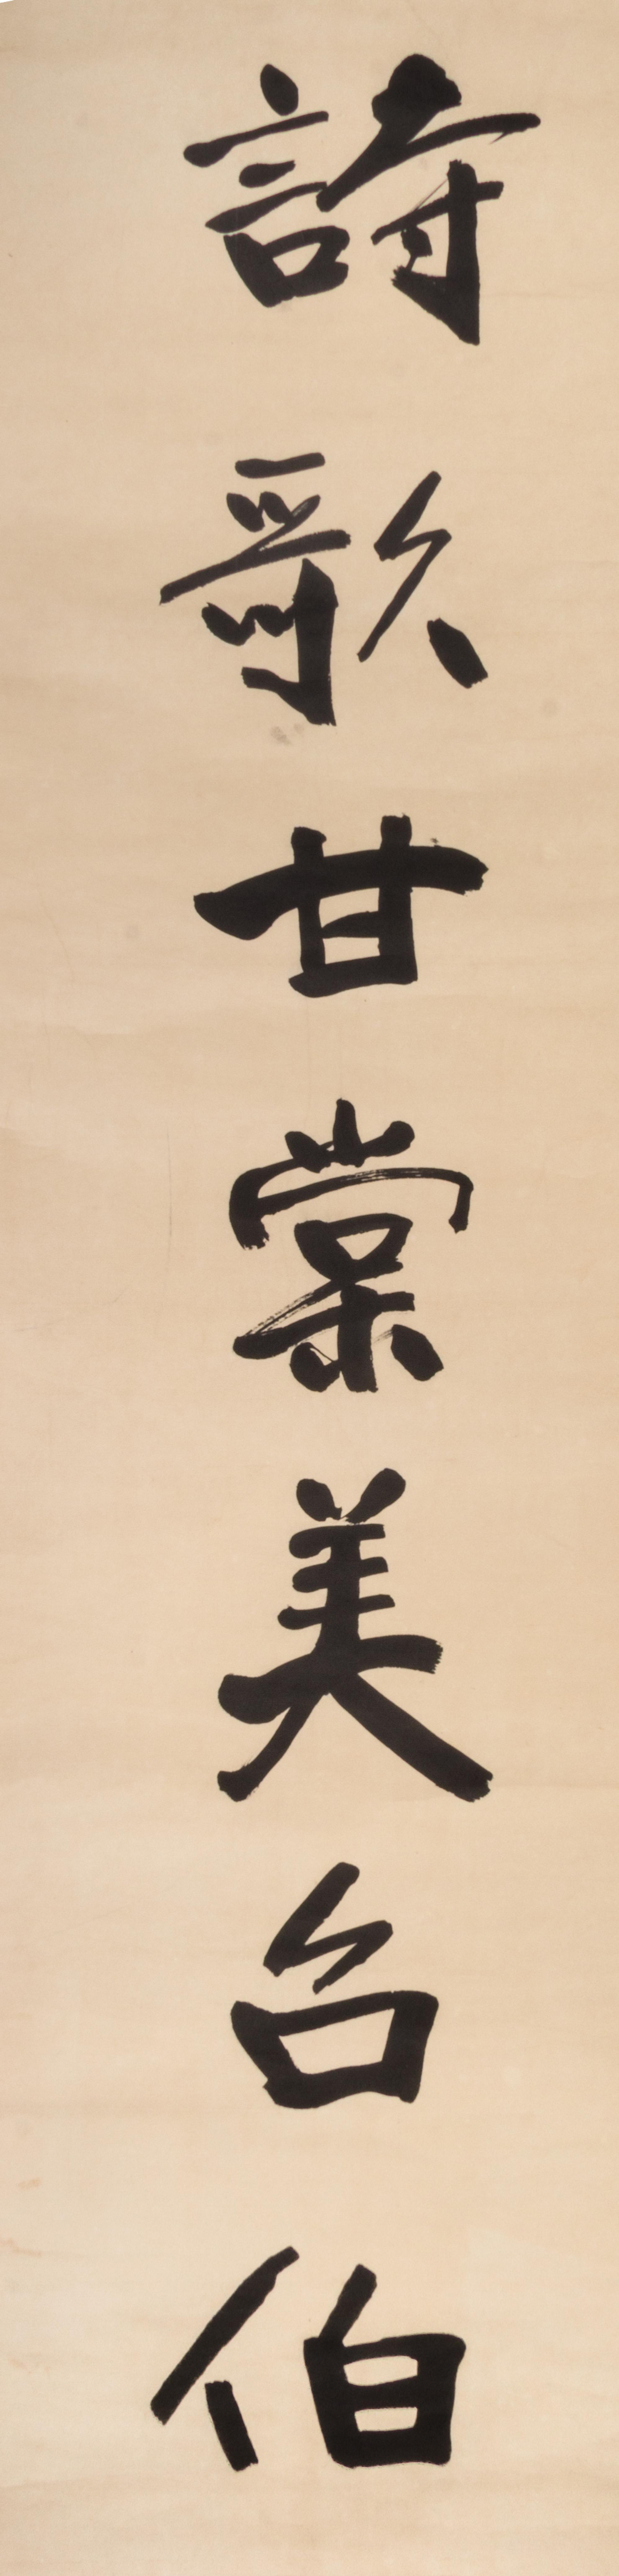 詩歌甘棠美召伯